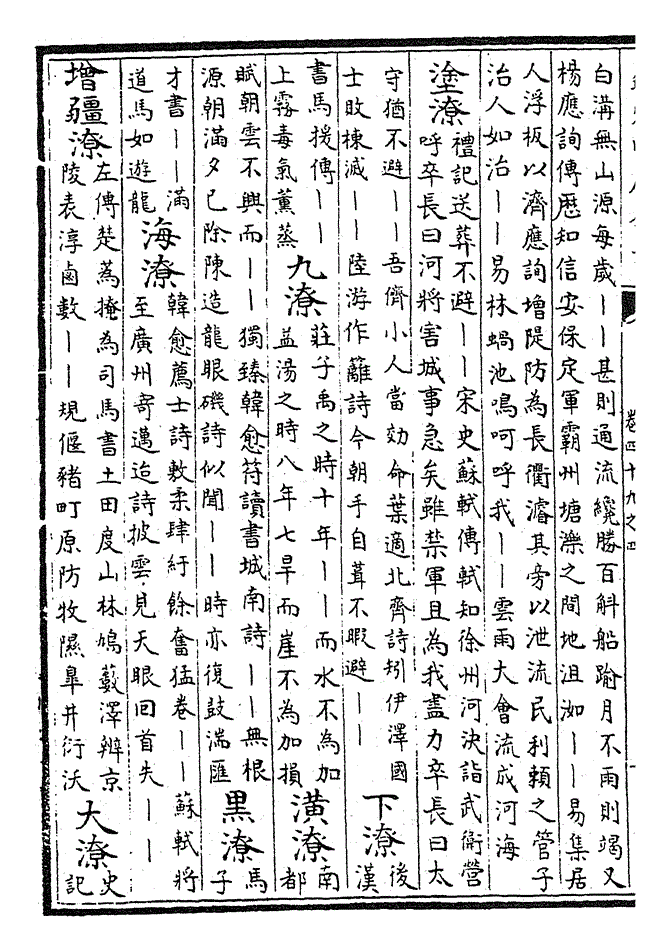 白溝無山源每歲——甚則通流纔勝百斛船踰月不雨則竭又
楊應詢傳歷知信安保定軍霸州塘濼之間地沮洳——易集居
人浮板以濟應詢增隄防為長衢濬其旁以泄流民利賴之管子
治人如治——易林蝸池鳴呵呼我——雲雨大會流成河海
塗潦
禮記送葬不避——宋史蘇軾傳軾知徐州河決詣武衛營
呼卒長曰河將害城事急矣雖禁軍且為我盡力卒長曰太
守猶不避——吾儕小人當効命葉適北齋詩矧伊澤國
士敗棟滅——陸游作籬詩今朝手自葺不暇避——
下潦
後
漢
書馬援傳——
上霧毒氣薰蒸
九潦
莊子禹之時十年——而水不為加
益湯之時八年七旱而崖不為加損
潢潦
南
都
賦朝雲不興而——獨臻韓愈符讀書城南詩——無根
源朝滿夕已除陳造龍眼磯詩似聞——時亦復鼓湍匯
黑潦
馬
子
才書——滿
道馬如遊龍
海潦
韓愈薦士詩敷柔肆紆餘奮猛卷——蘇軾將
至廣州寄邁迨詩披雲見天眼回首失——
增疆潦
左傳楚蒍掩為司馬書土田度山林鳩藪澤辨京
陵表淳鹵數——規偃豬町原防牧隰臯井衍沃
大潦
史
記
卷四十九之四